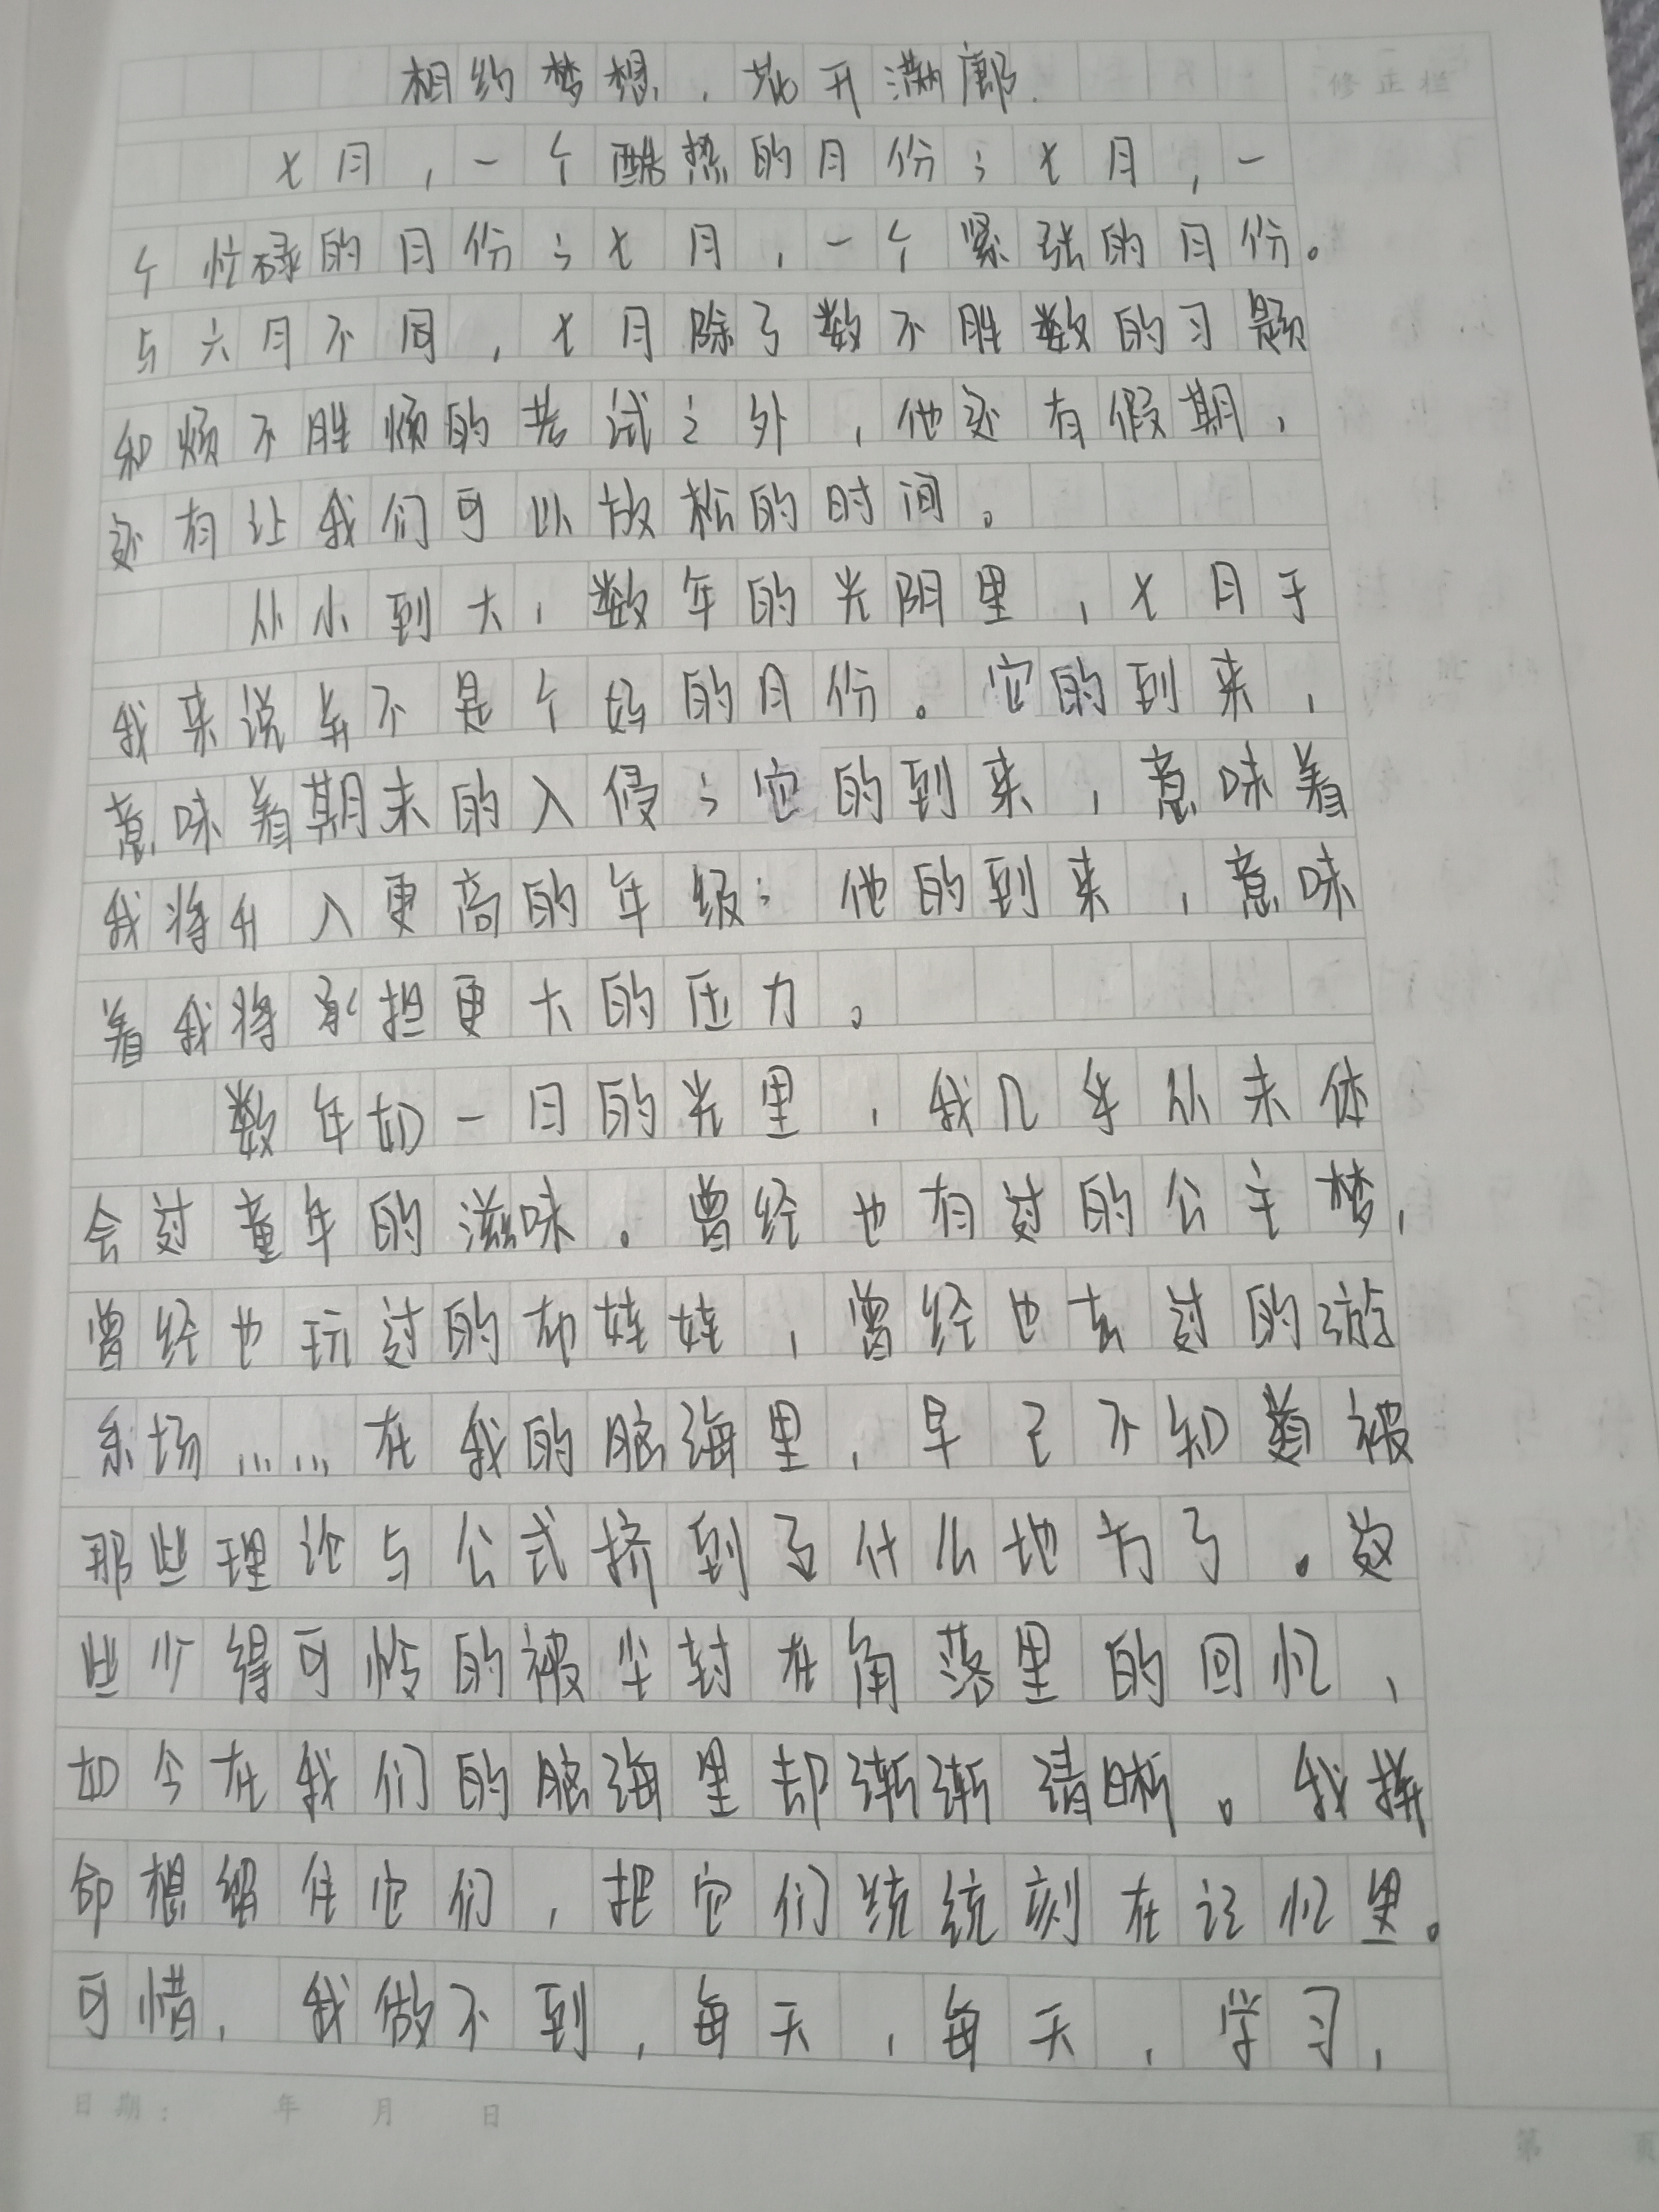 相约梦想，花开满廊
修正栏
七月，一个酷热的月份；七月，一
个忙碌的月份；七月，一个紧张的月份。
与六月不同，七月除了数不胜数的习题
和烦不胜烦的考试之外，他还有假期，
还有让我们可以放松的时间。
从小到大，数年的光阴里，七月于
我来说并不是个好的月份。它的到来，
意味着期末的入侵；它的到来，意味着
我将升入更高的年级；他的到来，意味
着我将承担更大的压力。
数年如一日的光里，我几乎从未体
会过童年的滋味。曾经也有过的公主梦，
曾经也玩过的布娃娃，曾经也去过的游
乐场……在我的脑海里，早已不知道被
那些理论与公式挤到了什么地方了。这
些少得可怜的被尘封在角落里的回忆，
如今在我们的脑海里却渐渐清晰。我拼
命想留住它们，把它们统统刻在记忆里。
可惜，我做不到，每天，每天，学习，
日期： 年 月 日
第 页